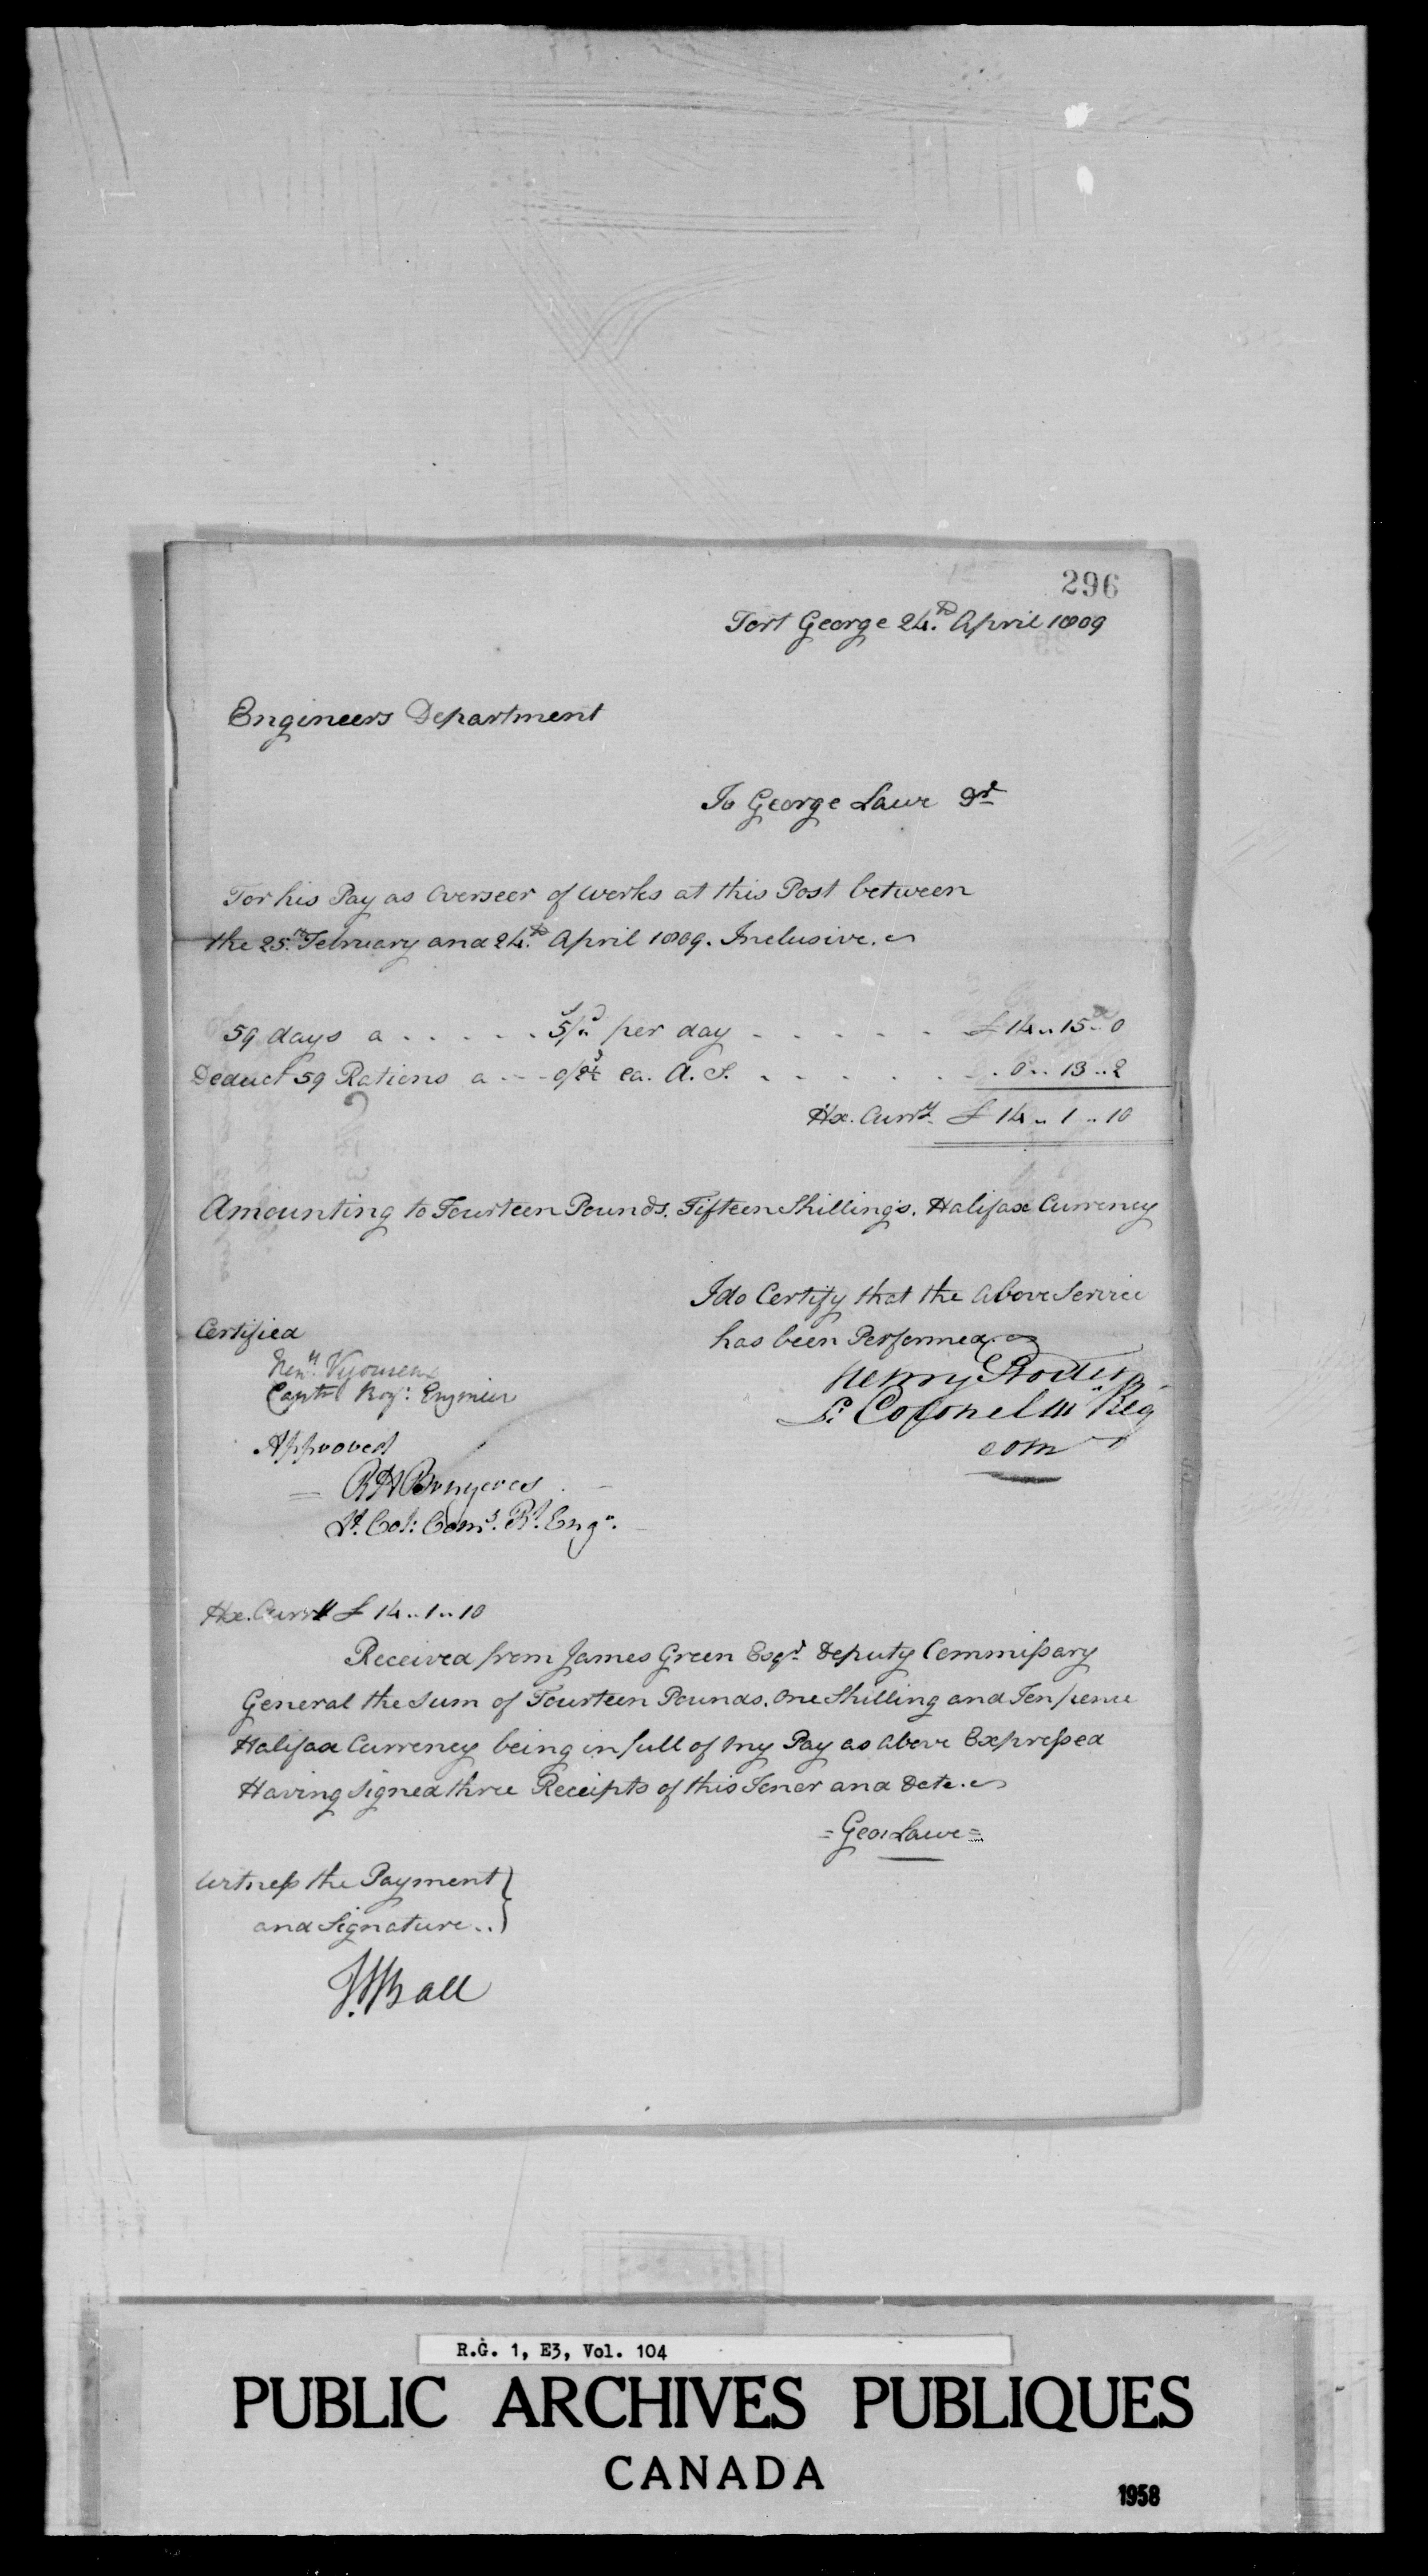 296
Fort George 24.th April 1809
Engineers Department
To George Lawe Dr
For his Pay as Overseer of works at this Post between
the 25.th February and 24.th April 1809. Inclusive.
59 days a . . . . . 5/" per day - - - - - £ 14 .. 15 .. 0
Deduct 59 Rations a - - - 0/2¾ ea. A. S. - - - - - . 0 .. 13 .. 2
Hx. Curry. £ 14 .. 1 .. 10
Amounting to Fourteen Pounds. Fifteen Shillings. Halifax Currency
I do Certify that the above Service
has been Performed.
Certified
Henry
Lt Colonel Reg
Capt. Roy: Engineer
com
Approved
RH Bruyeres
Lt. Col: Comg. Rl. Engrs.
Hx. Curry £ 14 .. 1 .. 10
Received from James Green Esqr. Deputy Commissary
General the Sum of Fourteen Pounds. One Shilling and Ten pence
Halifax Currency being in full of my Pay as above Expressed
Having signed three Receipts of this Tenor and Date.
= Geo: Lawe =
Witness the Payment }
and Signature .. }
Ball
R.G. 1, E3, Vol. 104
PUBLIC ARCHIVES PUBLIQUES
CANADA
1958